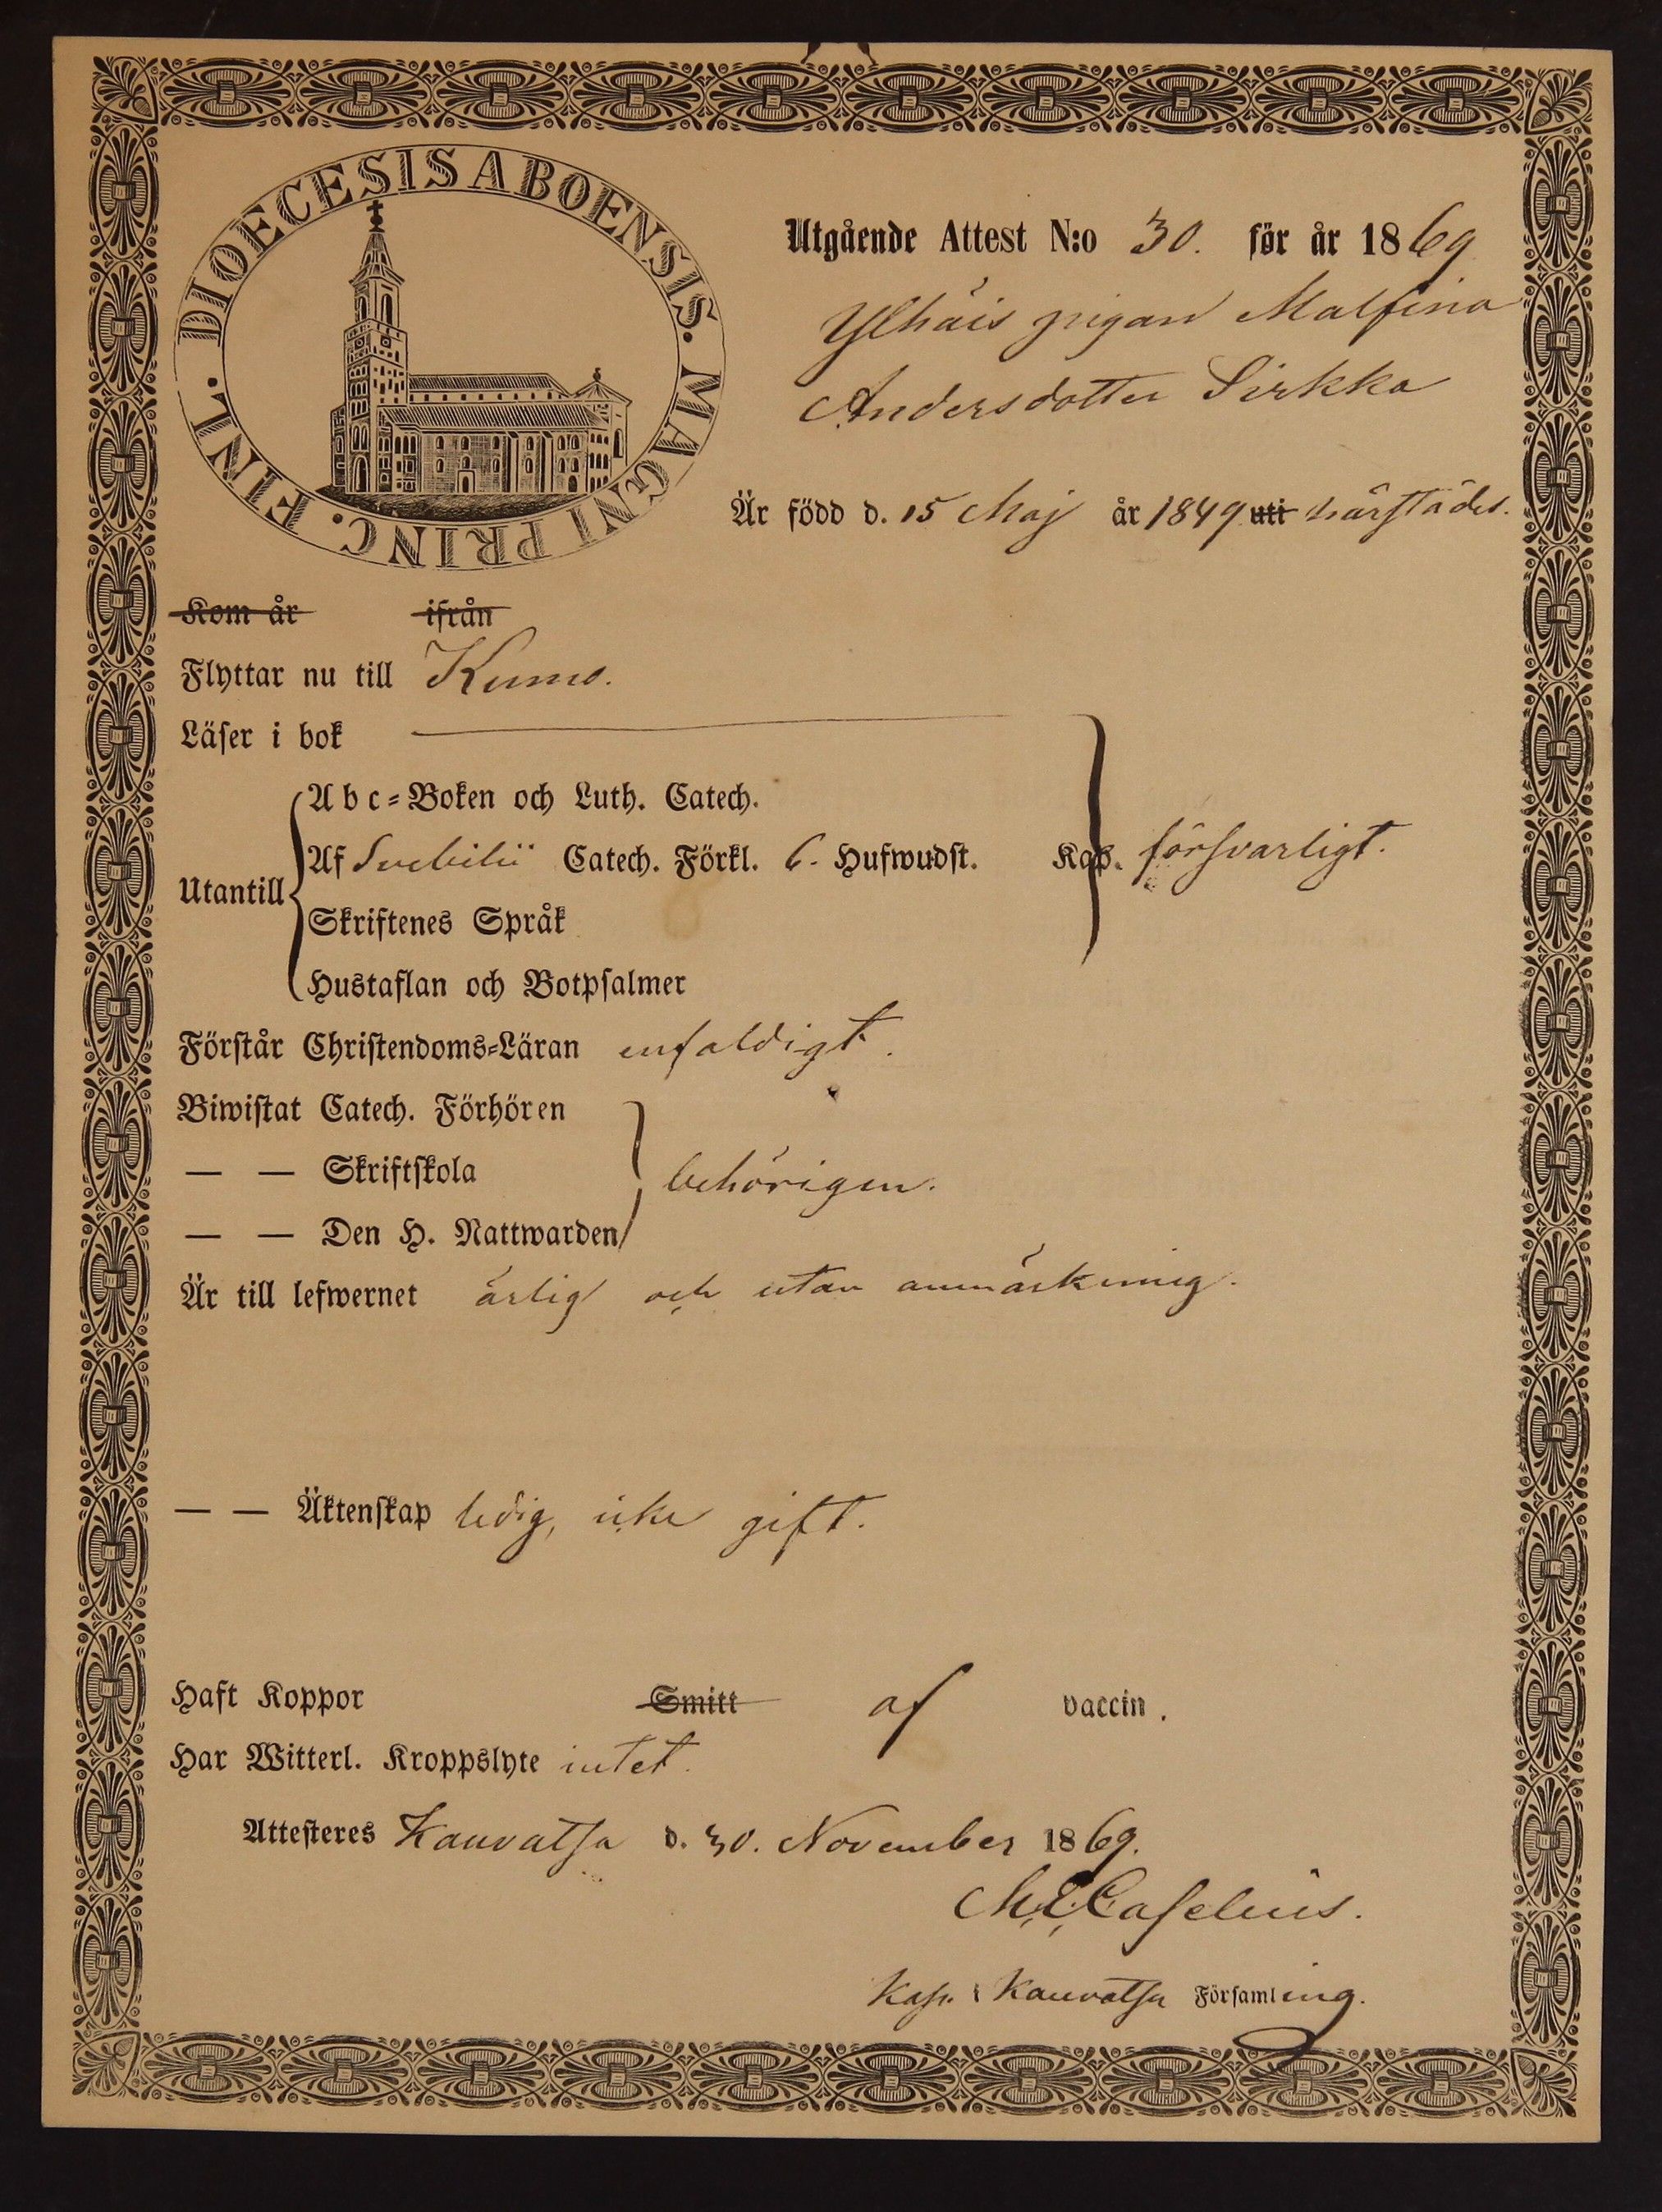 DIOECESIS ABOENSIS. MAGNI PRINC. FINL.
Utgående Attest N:o 30. för år 1869
Ylhäis pigan Malfina
Andersdotter Sirkka
Är född d. 15 Maj år 1849 uti härstädes.
Kom år ifrån
Flyttar nu till Kumo.
Läser i bok
Utantill
Abc-Boken och Luth. Catech.
Af Svebilii Catech. Förkl. 6. Hufwudst. Kap. försvarligt.
Skriftenes Språk
Hustaflan och Botpsalmer
Förstår Christendoms-Läran enfaldigt.
Biwistat Catech. Förhören
— — Skriftskola behörigen.
— — Den H. Nattwarden
Är till lefwernet ärlig och utan anmärkning.
— — Äktenskap ledig, icke gift.
Haft Koppor Smitt af vaccin.
Har Witterl. Kroppslyte intet.
Attesteres Kauvatsa d. 30. November 1869.
Caselius.
Kap. i Kauvatsa Församling.